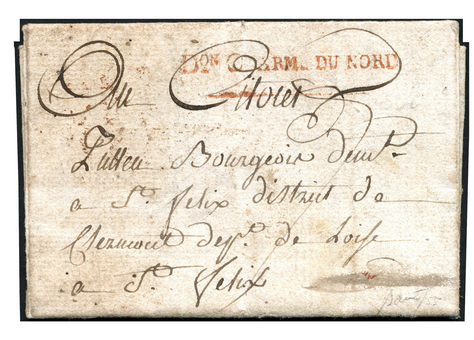 Don C ARM. DU NORD
Au Citoien
Bourgeois demt.
a St. felix district de
Clermont dept. de Loise
a St. felix